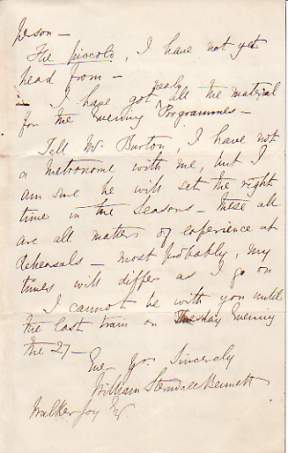 person —
The piccolo, I have not yet
head from —
I have got nearly all the material
for the evening Programmes —
Tell Mr. Burton, I have not
a metronome with me, but I
am sure he will set the right
time in the Seasons — these all
are all matters of experience at
Rehearsals — most probably, my
times will differ as I go on
I cannot be with you until
the last train on Tuesday Evening
the 27 —
Ever Yrs. Sincerely
William Sterndale Bennett
Walker Joy Esq